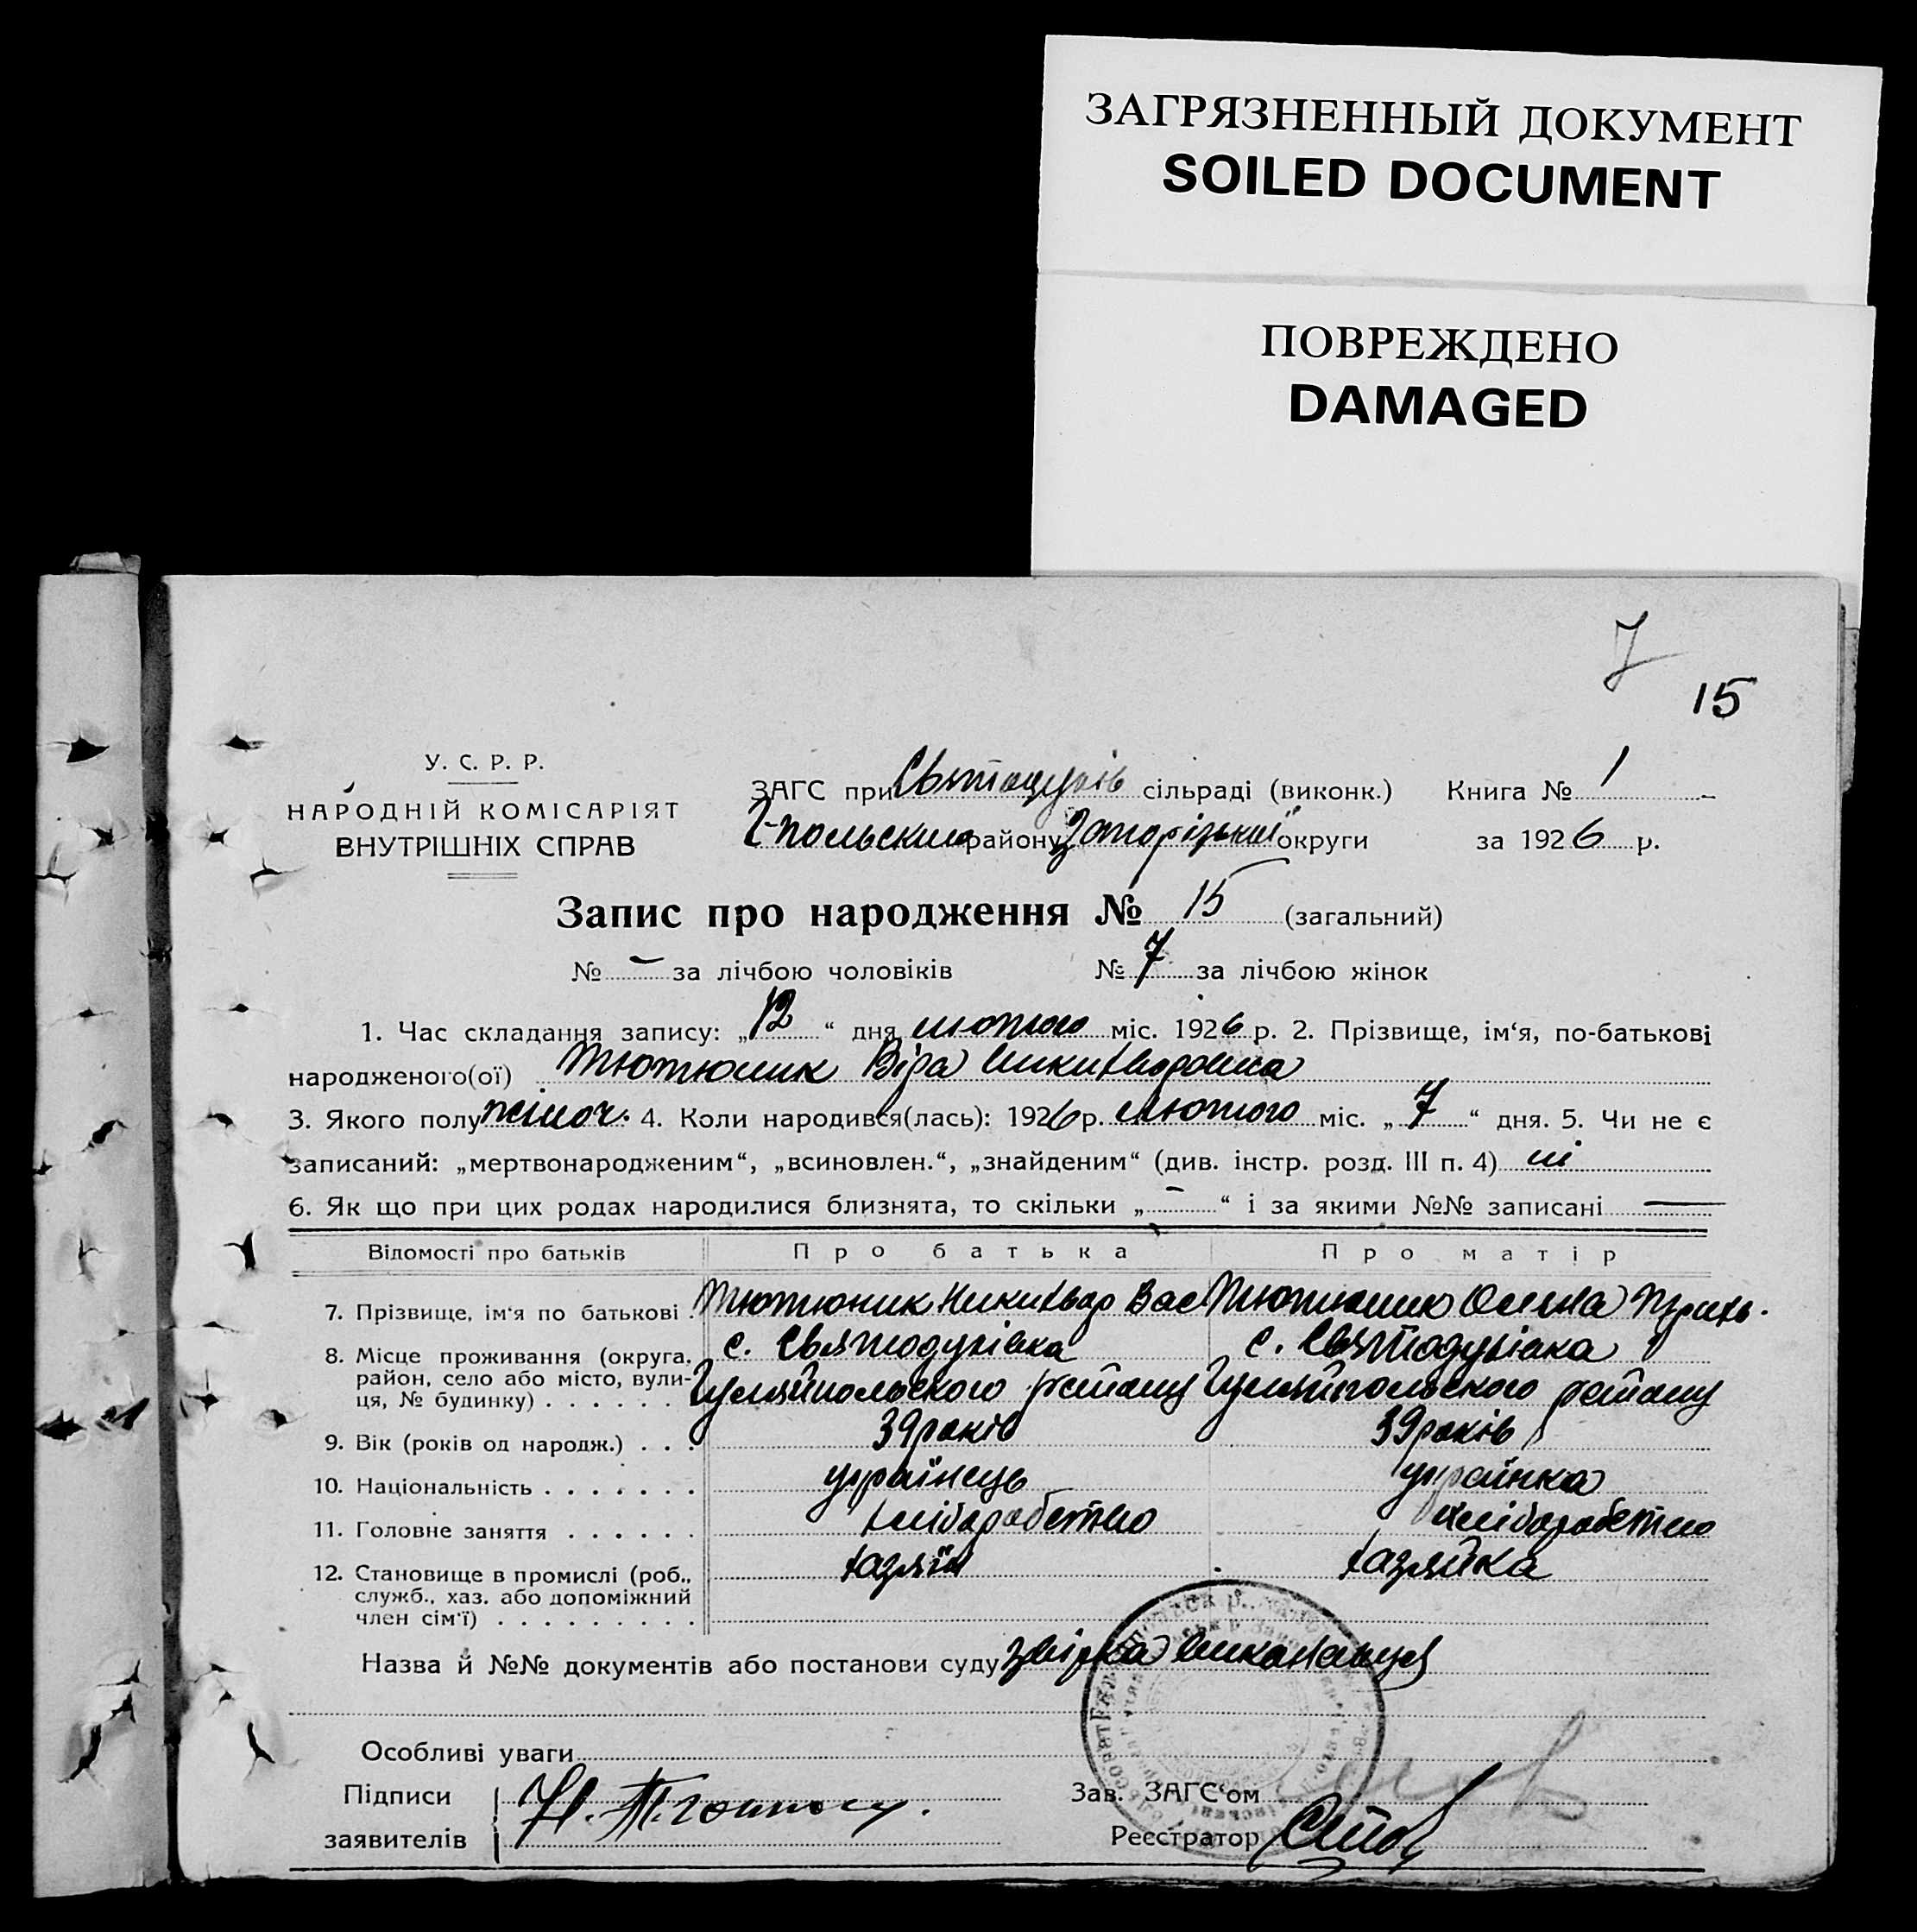 ЗАГРЯЗНЕННЫЙ ДОКУМЕНТ
SOILED DOCUMENT
ПОВРЕЖДЕНО
DAMAGED
7
15
У. С. Р. Р.
НАРОДНІЙ КОМІСАРІЯТ
ВНУТРІШНІХ СПРАВ
ЗАГС при Святодухів сільраді (виконк.) Книга № 1
Г-Польским району Запорізькиї округи за 1926 р.
Запис про народження № 15 (загальний)
№ – за лічбою чоловіків № 7 за лічбою жінок
1. Час складання запису: „12“ дня лютого міс. 1926 р. 2. Прізвище, ім‘я, по-батькові
народженого(ої) Тютюник Віра
3. Якого полу жіноч. 4. Коли народився(лась): 1926 р. лютого міс. „7“ дня. 5. Чи не є
записаний: „мертвонародженим“, „всиновлен.“, „знайденим“ (див. інстр. розд. III п. 4) ні
6. Як що при цих родах народилися близнята, то скільки „–“ і за якими №№ записані —
Відомості про батьків Про батька Про матір
7. Прізвище, ім‘я по батькові . Тютюник Никихвор Вас Тютюник Олена
8. Місце проживання (округа, район, село або місто, вулиця, № будинку) . . . . . . с. Святодухівка с. Святодухівка
Гуляйпольского району Гуляйпольского району
9. Вік (років од народж.) . . . 39 років 39 років
10. Національність . . . . . . . українець українка
11. Головне заняття . . . . . . хліборобство хліборобство
12. Становище в промислі (роб., хазяїн хазяйка
служб., хаз. або допоміжний
член сім‘ї) . . . . . . . . .
Назва й №№ документів або постанови суду звірка виконавця
Особливі уваги
Підписи Зав. ЗАГС‘ом
заявителів Реєстратор